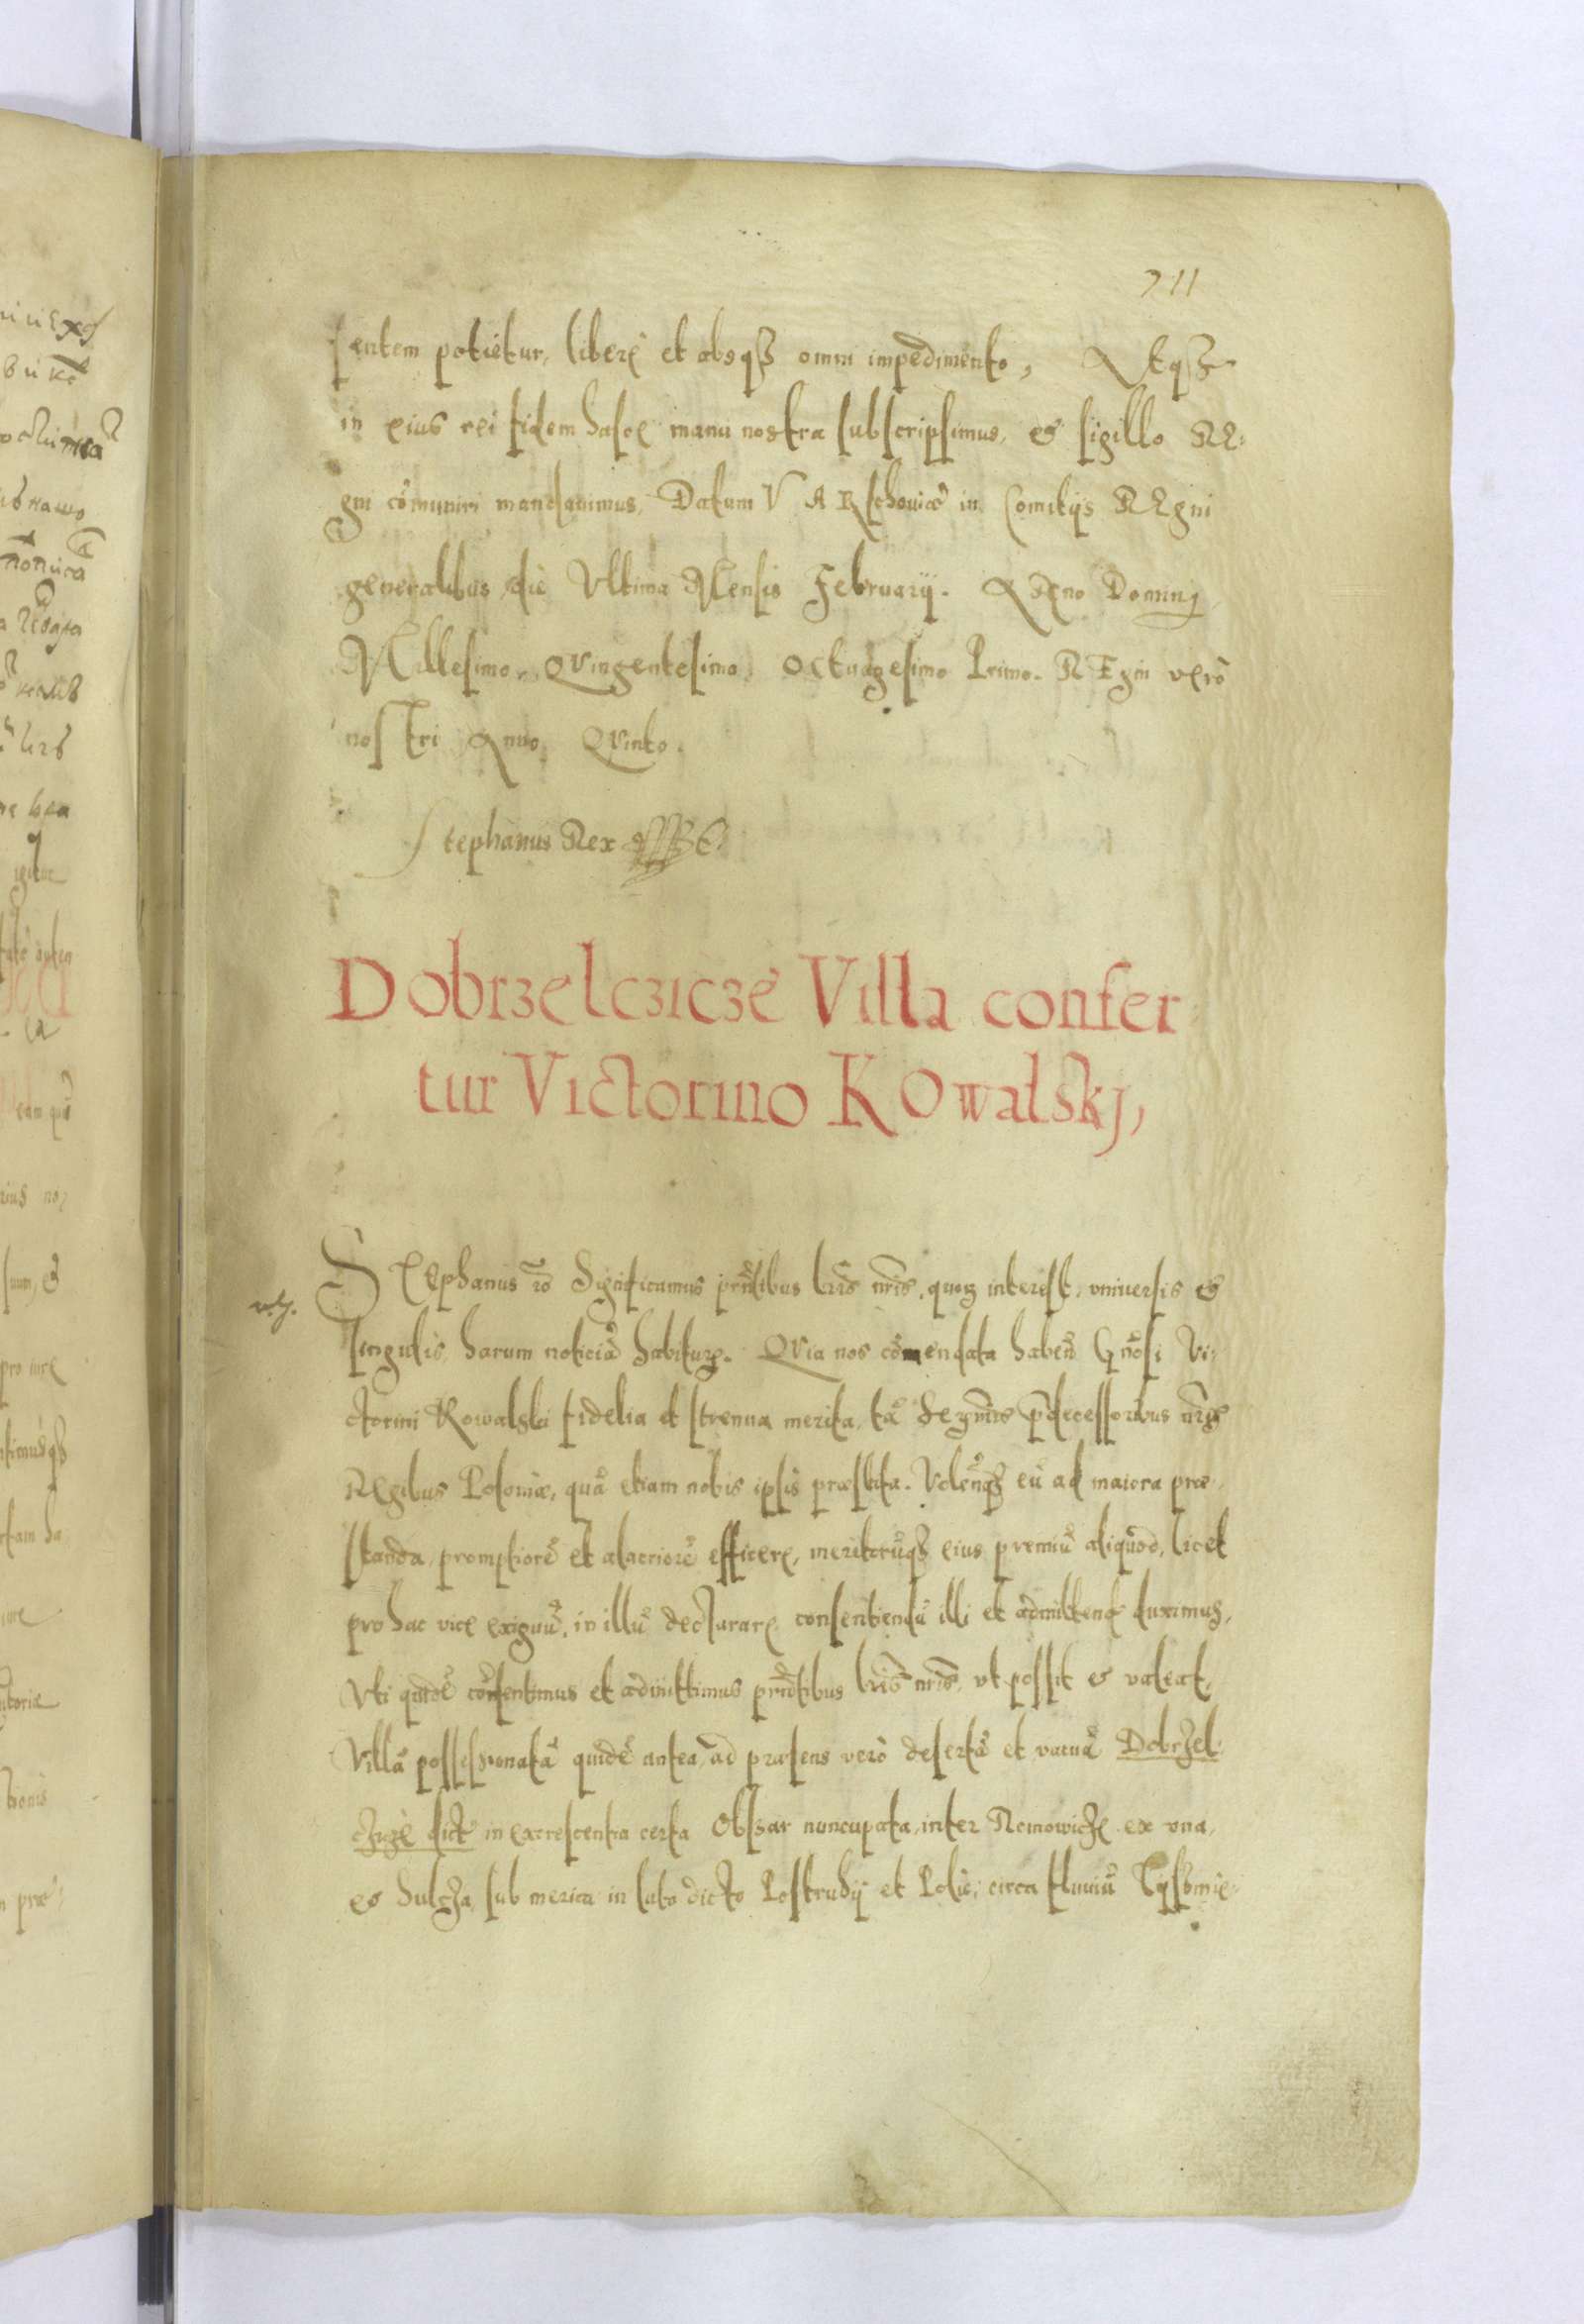 711
sentem potietur, liberè et absqȝ omni impedimento, Atqȝ
in eius rei fidem hasce manu nostra subscripsimus, et sigillo RE:
gni cōmuniri mandauimus, Datum VARschouiæ in Comitijs REgni
generalibus die Vltima Mensis Februarij. Año Dominj
Millesimo, QVingentesimo, OCtuagesimo Primo. REgni verò
nostri Anno QVinto.
Stephanus Rex
Dobrzelczicze Villa confer
tur Victorino KOwalskj,
STephanus Significamus pñtibus lris nris, quoȝ interest, vniuersis et
singulis harum noticiā habitur. QVia nos cōmendata habeñ Gñosi Vi:
ctorini Kowalski fidelia et strenua merita, tā Serñmis prædecessoribus nris
REgibus Poloniæ, quā etiam nobis ipsis præstita. Volenqȝ eū ad maiora præ:
standa, promptiorē et alacriorē efficere, meritorūqȝ eius premiū aliquod, licet
pro hac vice exiguū, in illū declarare, consentiendū illi et admittend duximus,
Vti quidē consentimus et admittimus pñtibus lris nris, vt possit et valeat,
Villā possessionatā quidē antea, ad præsens verò desertā et vacuā Dobrzel:
czicze dict in excrescentia certa Obszar nuncupata, inter Remowicze ex vna,
et Sulcza sub merica in luto dicto Postruhij et Polie, circa fluuiū